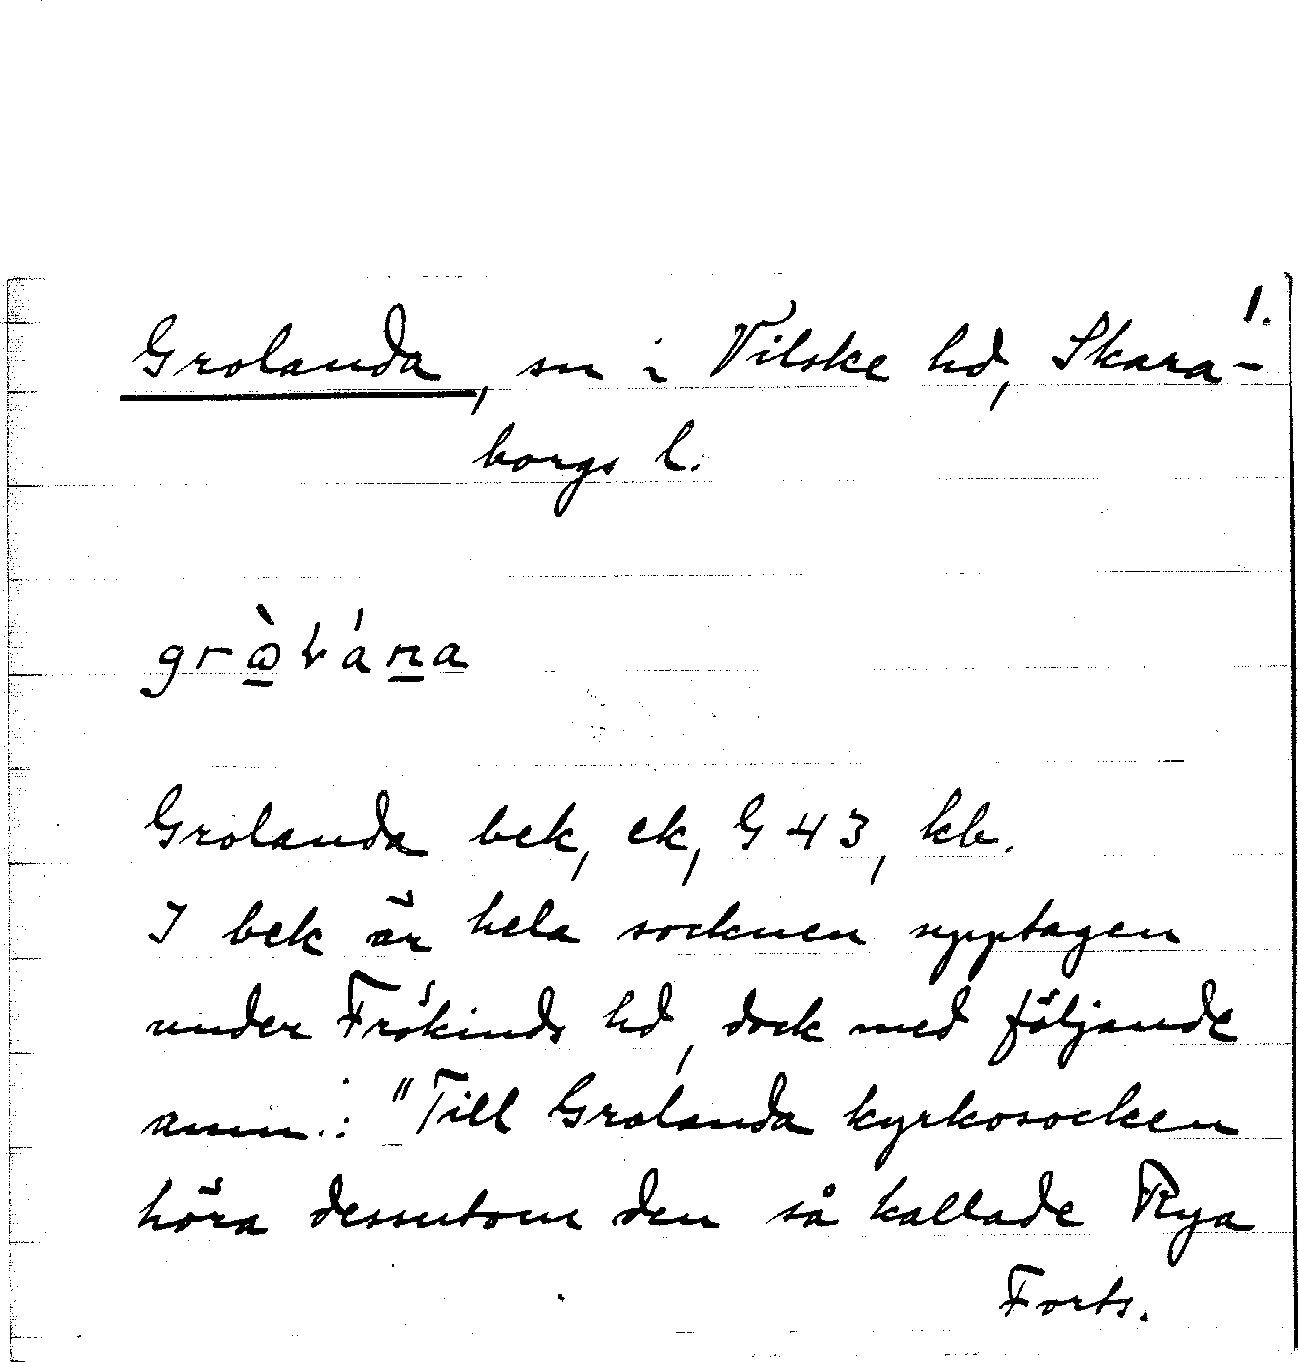 1.
Grolanda, sn i Vilske hd, Skara-
borgs l.
Grolanda bek, ek, G 43, kb.
I bek är hela socknen upptagen
under Frökinds hd, dock med följande
anm.: "Till Grolanda kyrkosocken
höra dessutom den så kallade Rya
Forts.